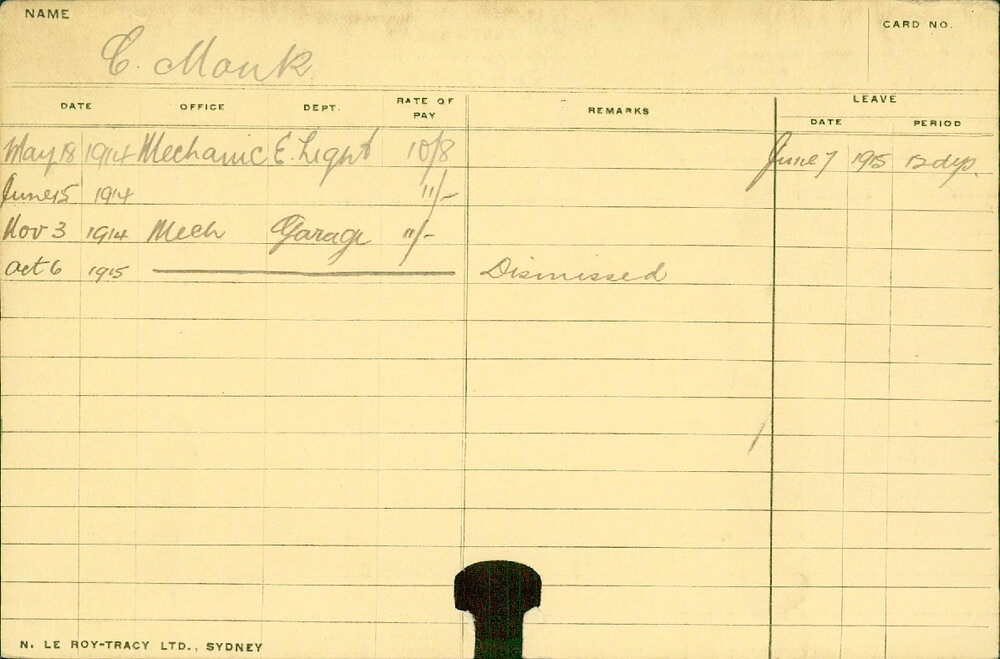 NAME
CARD NO.
C. Monk
DATE OFFICE DEPT. RATE OF PAY REMARKS LEAVE
DATE PERIOD
May 18 1914 Mechanic E. Light 10/8 June 7 1915 12 dys.
June 15 1914 11/-
Nov 3 1914 Mech Garage 11/-
Oct 6 1915 Dismissed
N. LE ROY-TRACY LTD., SYDNEY